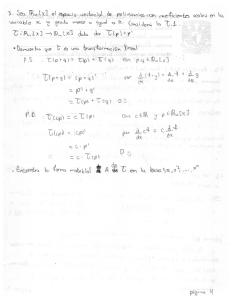 3. Sea ℝₙ[x] el espacio vectorial de polinomios con coeficientes reales en la
variable x y grado menor o igual a n. Considera la T.L.
τ: ℝₙ[x] → ℝₙ[x] dada por τ(p) = p'
• Demuestra que τ es una transformación lineal
P.S. τ(p+q) = τ(p) + τ(q) con p, q ∈ ℝₙ[x]
τ(p+q) = (p+q)'
= p' + q'
= τ(p) + τ(q)
P.E. τ(cp) = c τ(p) con c ∈ ℝ y p ∈ ℝₙ[x]
τ(cp) = (cp)'
= c · p'
= c · τ(p)
• Encuentra la forma matricial A de τ en la base
página 4